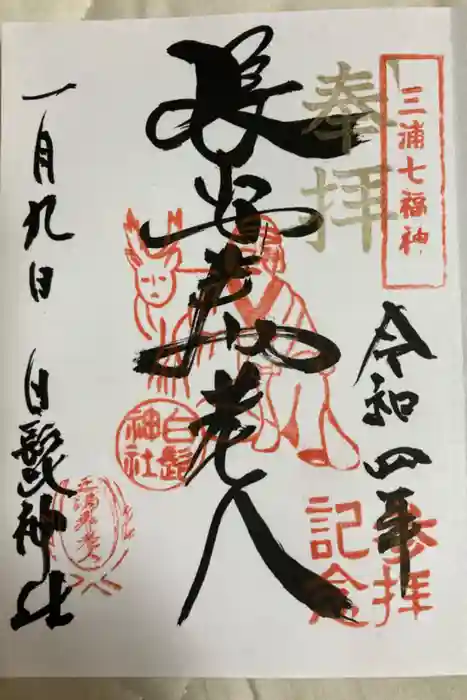 三浦七福神
奉拝
令和四年
参拝
記念
長安寿老人
白髭
神社
一月九日
白髭神社